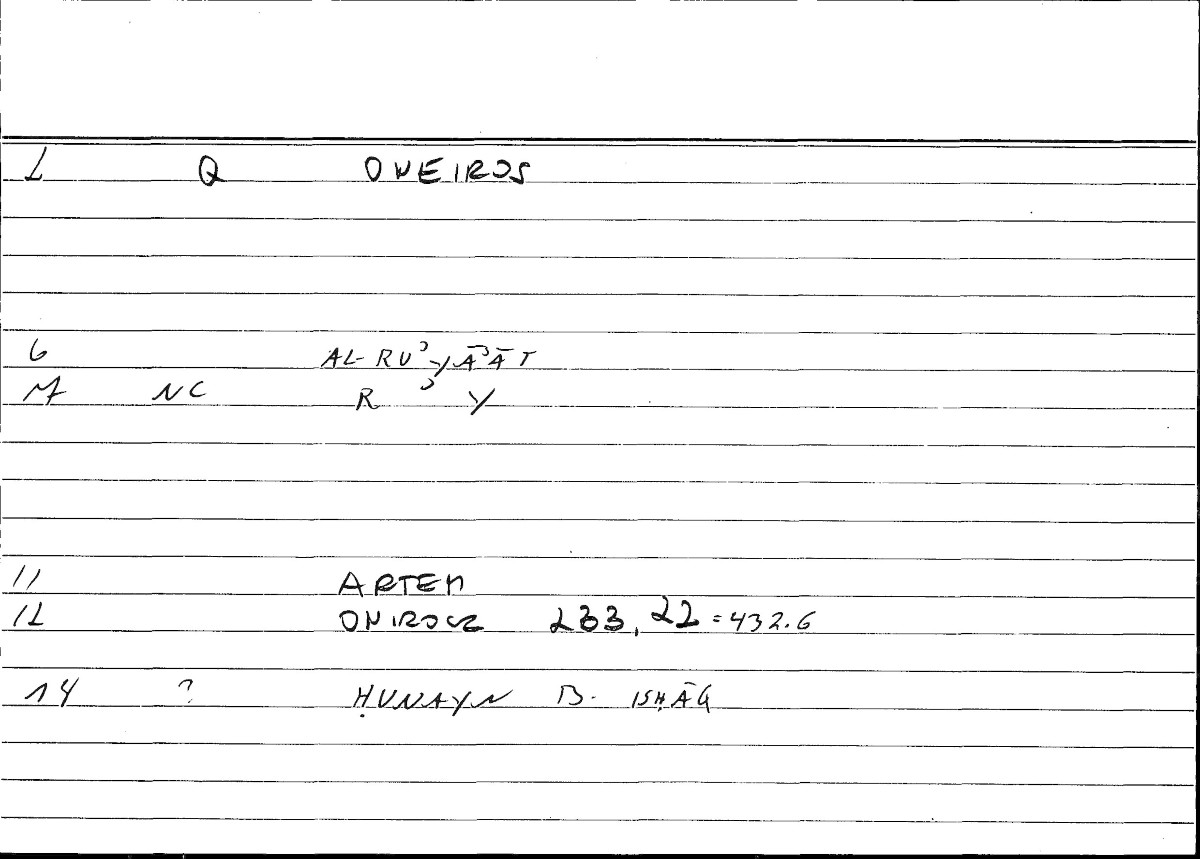 1 Q ONEIROS
6 AL-RUʾYĀʾĀT
M NC R ʾ Y
11 ARTEM
12 ONIROCR 233,22 = 432.6
14 ? ḤUNAYN B. ISḤĀQ